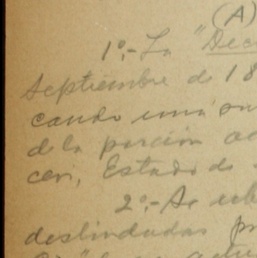 (A)
1º.- La "Dec
Septiembre de 18
cando una
de la porción
cen, Estado de
2º.- Se
deslindadas